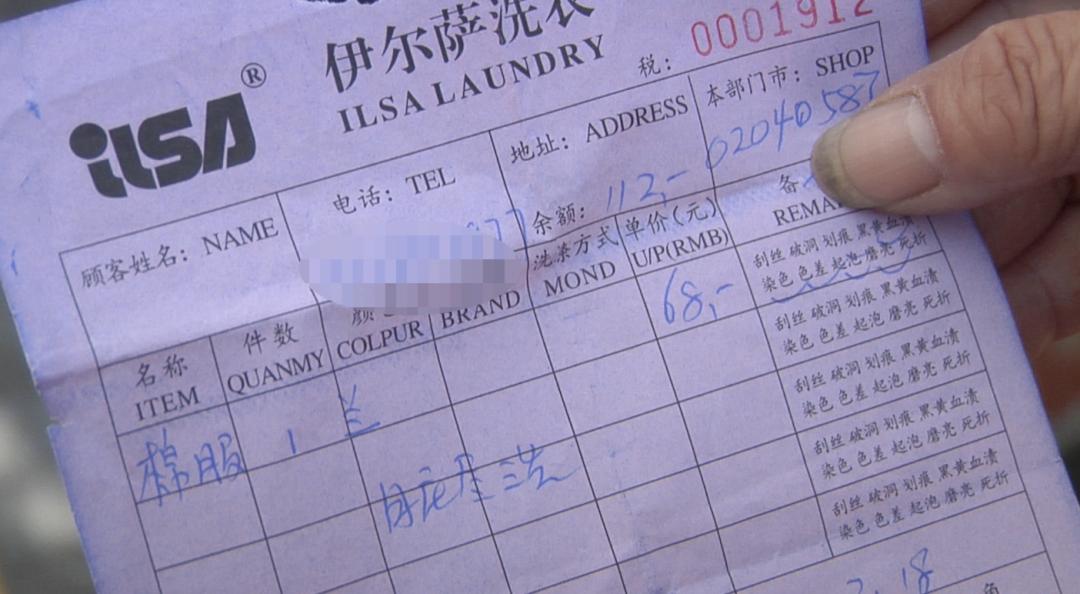 伊尔萨洗衣
ILSA LAUNDRY
ilSA®
0001912
税：
顾客姓名：NAME
电话：TEL
地址：ADDRESS
本部门市：SHOP
02040587
余额：112,-
备
名称
ITEM
件数
QUANMY
COLPUR
BRAND
洗染方式
MOND
单价(元)
U/P(RMB)
棉服
1
兰
68,-
刮丝 破洞 划痕 黑黄血渍
染色 色差 起泡 磨亮 死折
刮丝 破洞 划痕 黑黄血渍
染色 色差 起泡 磨亮 死折
刮丝 破洞 划痕 黑黄血渍
染色 色差 起泡 磨亮 死折
刮丝 破洞 划痕 黑黄血渍
染色 色差 起泡 磨亮 死折
刮丝 破洞 划痕 黑黄血渍
染色 色差 起泡 磨亮 死折
18